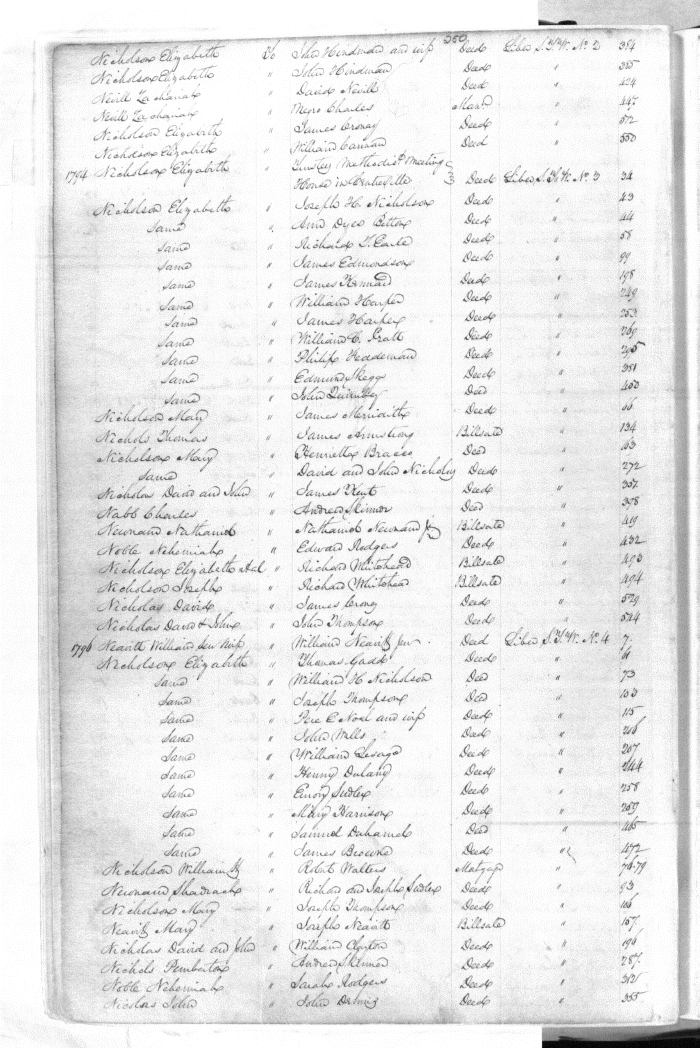 350
Nicholson Elizabeth Do John Hindman and wife Deed Liber S.T.W. No 2 384
Nicholson Elizabeth " John Hindman Deed " 385
Nevill Zachariah " David Nevill Deed " 424
Nevill Zachariah " Negro Charles Manu " 447
Nicholson Elizabeth " James Croney Deed " 572
Nicholson Elizabeth " William Cannan Deed " 550
1794 Nicholson Elizabeth " Trustees Methodist Meeting
House in Centreville Deed Liber S.T.W. No 3 34
Nicholson Elizabeth " Joseph H. Nicholson Deed " 43
Same " Ann Dyer Betton Deed " 44
Same " Richard T. Earle Deed " 58
Same " James Edmondson Deed " 99
Same " James Kennard Deed " 198
Same " William Harper Deed " 249
Same " James Harper Deed " 253
Same " William C. Pratt Deed " 269
Same " Philip Feddeman Deed " 295
Same " Edmund Skeggs Deed " 381
Same " John Quimbey Deed " 400
Nicholson Mary " James Meridith Deed " 66
Nichols Thomas " James Armstrong Billsale " 134
Nicholson Mary " Henrietta Bracco Deed " 163
Same " David and John Nicholas Deed " 272
Nicholas David and John " James Kent Deed " 357
Nabb Charles " Andrew Skinner Deed " 398
Newnand Nathaniel " Nathaniel Newnand Jr Billsale " 419
Noble Nehemiah " Edward Rodgers Deed " 432
Nicholson Elizabeth Hal " Richard Whitehead Billsale " 493
Nicholson Joseph " Richard Whitehead Billsale " 494
Nicholas David " James Croney Deed " 529
Nicholas David & John " John Thompson Deed " 544
1796 Neavitt William Sen wife " William Neavitt Jun Deed Liber S.T.W. No. 4 7
Nicholson Elizabeth " Thomas Gadd Deed " 11
Same " William H Nicholson Deed " 73
Same " Joseph Thompson Deed " 103
Same " Pere E Noel and wife Deed " 115
Same " John Wells Deed " 206
Same " William Lesage Deed " 207
Same " Henny Dulany Deed " 244
Same " Emory Sudler Deed " 258
Same " Mary Harrison Deed " 259
Same " Samuel Duhamel Deed " 465
Same " James Browne Deed " 472
Nicholson William H " Robert Walters Matgage " 78-79
Newnand Shadrach " Richard and Joseph Sudler Deed " 93
Nicholson Mary " Joseph Thompson Deed " 106
Neavitt Mary " Joseph Neavitt Billsale " 157
Nicholas David and John " William Clayton Deed " 196
Nichols Pemberton " Andrew Skinner Deed " 287
Noble Nehemiah " Sarah Rodgers Deed "
Nicolas John " John Deed " 355